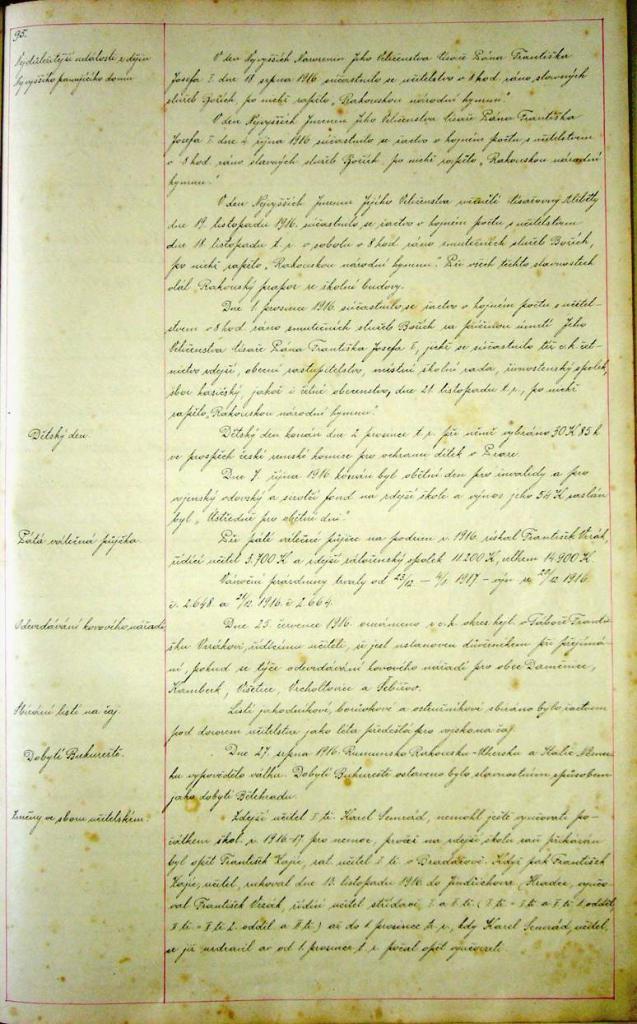 95.
Nejdůležitější události z dějin
Nejvyššího panujícího domu
V den Nejvyšších Narozenin Jeho Veličenstva císaře Pána Františka
Josefa I. dne 18. srpna 1916 súčastnilo se učitelstvo v 8 hod. ráno slavných
služeb Božích, po nichž zapěto „Rakouskou národní hymnu."
V den Nejvyšších Jmenin Jeho Veličenstva císaře Pána Františka
Josefa I. dne 4. října 1916 súčastnilo se žactvo v hojném počtu s učitelstvem
v 8 hod. ráno slavných služeb Božích, po nichž zapěto „Rakouskou národní
hymnu."
V den Nejvyšších Jmenin Jejího Veličenstva císařovny Alžběty
dne 19. listopadu 1916 súčastnilo se žactvo v hojném počtu s učitelstvem
dne 18. listopadu t. r. v sobotu v 8 hod. ráno smutečních služeb Božích,
po nichž zapěto „Rakouskou národní hymnu." Při všech těchto slavnostech
vlál Rakouský prapor ze školní budovy.
Dne 1. prosince 1916 súčastnilo se žactvo v hojném počtu s učitel-
stvem v 8 hod. ráno smutečních služeb Božích za příčinou úmrtí Jeho
Veličenstva císaře Pána Františka Josefa I., jichž se súčastnilo též c. k. čet-
nictvo zdejší, obecní zastupitelstvo, místní školní rada, živnostenský spolek,
sbor hasičský, jakož i četné obecenstvo, dne 21. listopadu t. r., po nichž
zapěto „Rakouskou národní hymnu."
Dětský den
Dětský den konán dne 2. prosince t. r. při němž vybráno 30 K 85 h
ve prospěch české zemské komise pro ochranu dítek v Praze.
Dne 7. října 1916 konán byl obětní den pro invalidy a pro
vojenský vdovský a sirotčí fond na zdejší škole a výnos jeho 54 K zaslán
byl „Ústředně pro obětní dni."
Pátá válečná půjčka.
Při páté válečné půjčce na podzim r. 1916 získal František Vrzák,
řídící učitel 3.700 K a zdejší záloženský spolek 11.200 K, celkem 14.900 K.
Vánoční prázdniny trvaly od 23/12 – 4/1 1917 –
č. 2648 a 1916 č. 2664.
Odevzdávání kovového nářadí
Dne 25. července 1916 oznámeno z c. k. okres. hejt. v Táboře Franti-
šku Vrzákovi, řídícímu učiteli, že jest ustanoven důvěrníkem při přejímá-
ní, pokud se týče odevzdávání kovového nářadí pro obce Daměnice,
Kamberk, Všetice, Vrcholtovice a Šebířov.
Sbírání listí na čaj.
Listí jahodníkové, borůvkové a ostružníkové sbíráno bylo žactvem
pod dozorem učitelstva jako léta předešlá pro vojsko na čaj.
Dobytí Bukurešti.
Dne 27. srpna 1916 Rumunsko Rakousku-Uhersku a Itálie Němec-
ku vypovědělo válku. Dobytí Bukurešti oslaveno bylo slavnostním způsobem
jako dobytí Bělehradu.
Změny ve sboru učitelském.
Zdejší učitel I. tř. Karel Semrád, nemohl ještě vyučovati po-
čátkem škol. r. 1916–17 pro nemoc, pročež na zdejší školu zas přikázán
byl opět František Hajíc, zat. učitel II. tř. v Bradáčově. Když pak František
Hajíc, učitel, rukoval dne 13. listopadu 1916 do Jindřichova Hradce, vyučo-
val František Vrzák, řídící učitel střídavě I. a II. tř. (I. tř. = I. tř. a II. tř. 1. odděl.
II. tř. = II. tř. 2. odděl. a III. tř.) až do 1. prosince t. r., kdy Karel Semrád, učitel,
se již uzdravil a od 1. prosince t. r. počal opět vyučovati.